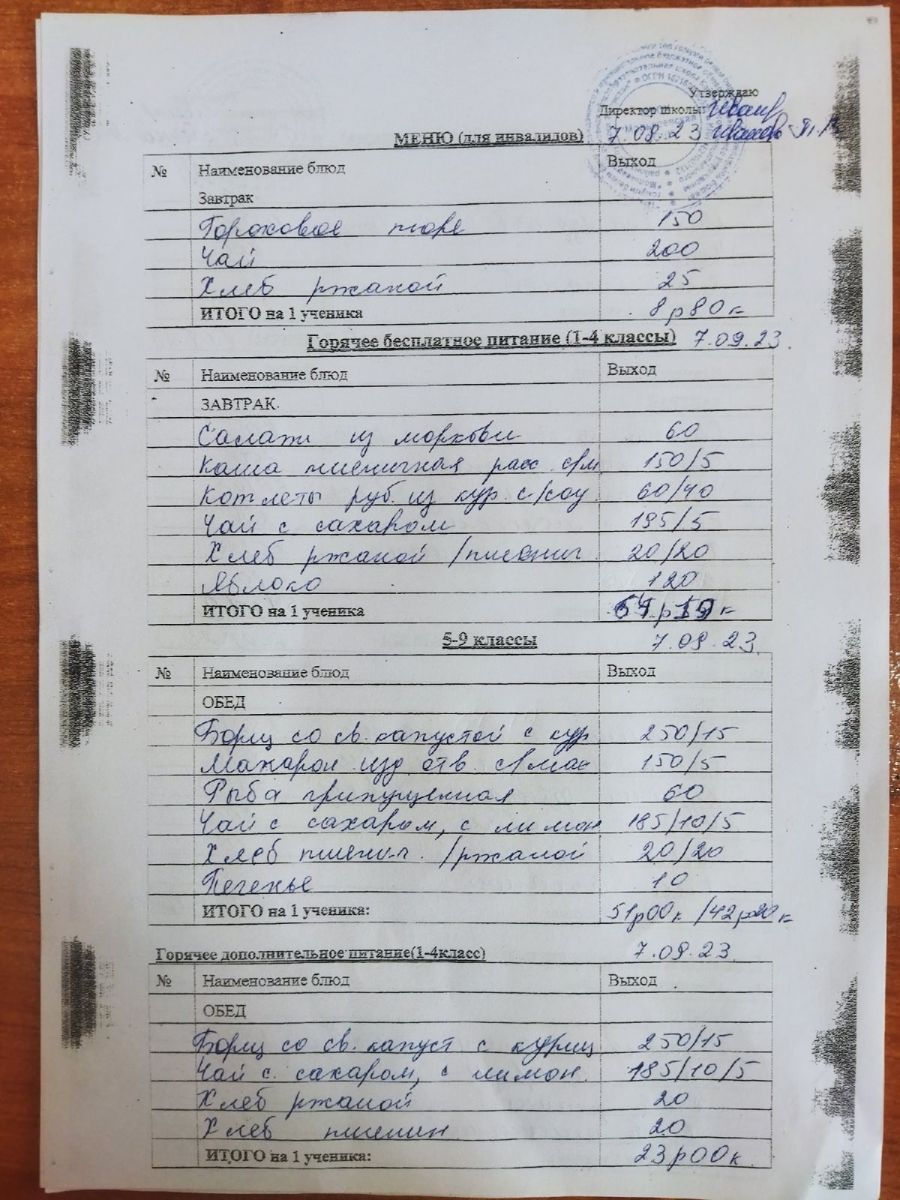 Утверждаю
Директор школы:
МЕНЮ (для инвалидов) 7.09.23
№ Наименование блюд Выход
Завтрак
Гороховое пюре 150
Чай 200
Хлеб ржаной 25
ИТОГО на 1 ученика 8р80к
Горячее бесплатное питание (1-4 классы) 7.09.23.
№ Наименование блюд Выход
ЗАВТРАК.
Салат из моркови 60
Каша пшеничная расс с/м 150/5
Котлеты руб. из кур. с/соу 60/40
Чай с сахаром 195/5
Хлеб ржаной /пшенич. 20/20
Яблоко 120
ИТОГО на 1 ученика
5-9 классы 7.09.23.
№ Наименование блюд Выход
ОБЕД
Борщ со св. капустой с кур 250/15
Макарон изд отв с/мас 150/5
Рыба припущенная 60
Чай с сахаром, с лимон 185/10/5
Хлеб пшенич. /ржаной 20/20
Печенье 10
ИТОГО на 1 ученика: 51р00к /42р20к
Горячее дополнительное питание(1-4класс) 7.09.23.
№ Наименование блюд Выход
ОБЕД
Борщ со св. капуст с куриц 250/15
Чай с. сахаром, с лимон. 185/10/5
Хлеб ржаной 20
Хлеб пшенич 20
ИТОГО на 1 ученика: 23р00к.